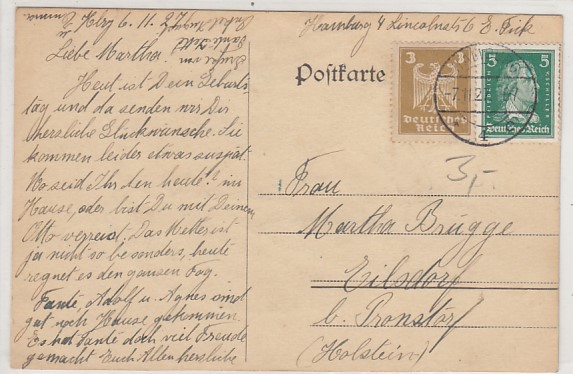 Hbg 6. 11. 27
Liebe Martha!
Heut ist Dein Geburts
tag und da senden wir Dir
herzliebe Glückwünsche. Sie
kommen leider etwas uspät.
Wo seid Ihr den heute? im
Hause, oder bist Du mit Deinem
Otto verreist. Das Wetter ist
ja nicht so besonders, heute
regnet es den gansen Tag.
Tante, Adolf u. Agnes sind
gut nach Hause gekommen.
Es hat Tante doch viel Freude
gemacht Euch Allen herzliebe
Hamburg 4 Lincolnstr 6 E. Fick
Postkarte
3 3
Deutsches
Reich
5 5
Deutsches Reich
3,-
Frau
Martha Brügge
Eilsdorf
b. Pronstorf
(Holstein)